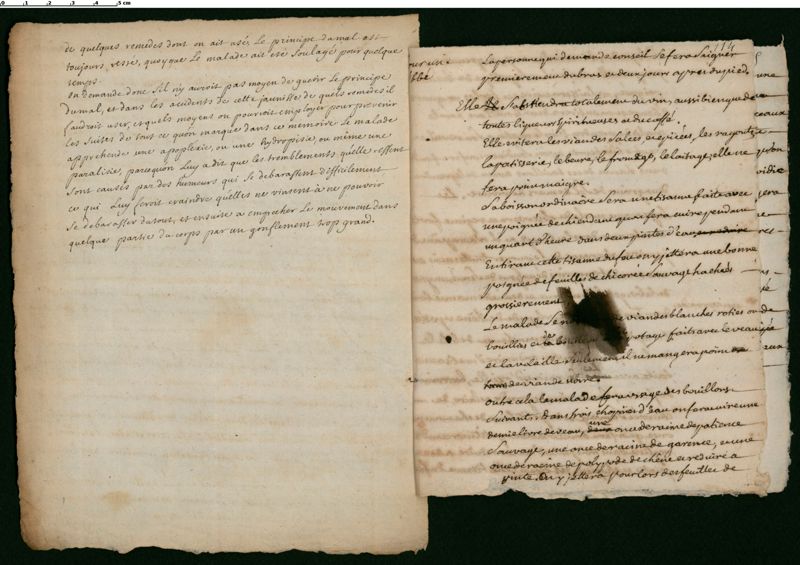 0 1 2 3 4 5 cm
de quelques remedes dont on ait usé. Le principe du mal est
toujours resté, quoyque Le malade ait eté Soulagé pour quelque
temps.
on demande donc S'il n'y auroit pas moyen de guerir Le principe
du mal, et dans les accidents de cette jaunisse de quels remedes il
faudroit user, et quels moyens on pourroit employer pour prevenir
les Suites de tout ce qu'on marque dans ce memoire. Le malade
apprehende une apoplexie, ou une hydropisie, ou même une
paralisie, parcequ'on Luy a dit que les tremblements qu'elle ressent
Sont causés par des humeurs qui Se debarassent difficilement
ce qui Luy feroit craindre qu'elles ne vinsent à ne pouvoir
Se debarasser du tout, et ensuite a empecher Le mouvement dans
quelque partie du corps par un gonflement trop grand.
114
La personne qui demande conseil Se fera Saigner
premierement du bras et deux jours aprés du pied.
Elle S'abstiendra totalement du vin, aussi bien que de
toutes liqueurs Spiritueuses et du caffé.
Elle evitera les viandes Salées et epicées, les ragouts
la patisserie, le beure, le fromage, le laitage; elle ne
fera point maigre.
Sa boisson ordinaire Sera une tisanne faite avec
une poignée de chiendent qu'on fera cuire pendant
un quart d'heure dans deux pintes d'eau
En tirant cette tisanne du feu on y jettera une bonne
poignée de feuilles de chicorée Sauvage hachées
grossierement
Le malade Se viandes blanches roties ou
bouillies et potage fait avec le veau
et la volaille Seulement, il ne mangera point
de viande noire.
outre cela le malade fera usage des bouillons
Suivants. dans trois chopines d'eau on fera cuire une
demie livre de veau, une once de racine de patience
Sauvage, une once de racine de garence, et une
once de racine de polypode de chêne et reduire à
pinte. On y jettera pour lors des feuilles de